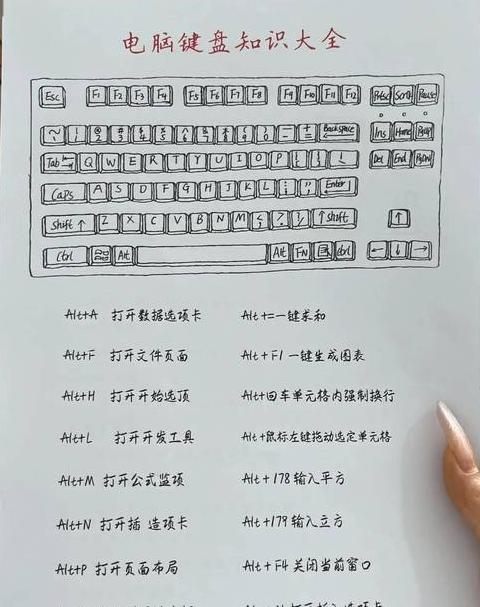 电脑键盘知识大全
Esc F1 F2 F3 F4 F5 F6 F7 F8 F9 F10 F11 F12 PrtSc Scroll Pause
~ ! @ 2 # 3 $ 4 % 5 ^ 6 & 7 * 8 ( 9 ) 0 - + = Backspace Ins Home PgUp
Tab Q W E R T Y U I O P { } \ Del End PgDn
Caps A S D F G H J K L ; " Enter
Shift ↑ Z X C V B N M < > ? / ↑ Shift ↑
Ctrl Alt Alt FN Ctrl ← ↓ →
Alt+A 打开数据选项卡 Alt+=一键求和
Alt+F 打开文件页面 Alt+F1 一键生成图表
Alt+H 打开开始选顶 Alt+回车单元格内强制换行
Alt+L 打开开发工具 Alt+鼠标左键拖动选定单元格
Alt+M 打开公式监项 Alt+178输入平方
Alt+N 打开插 造项卡 Alt+179输入立方
Alt+P 打开页面布局 Alt+F4 关闭当前窗口